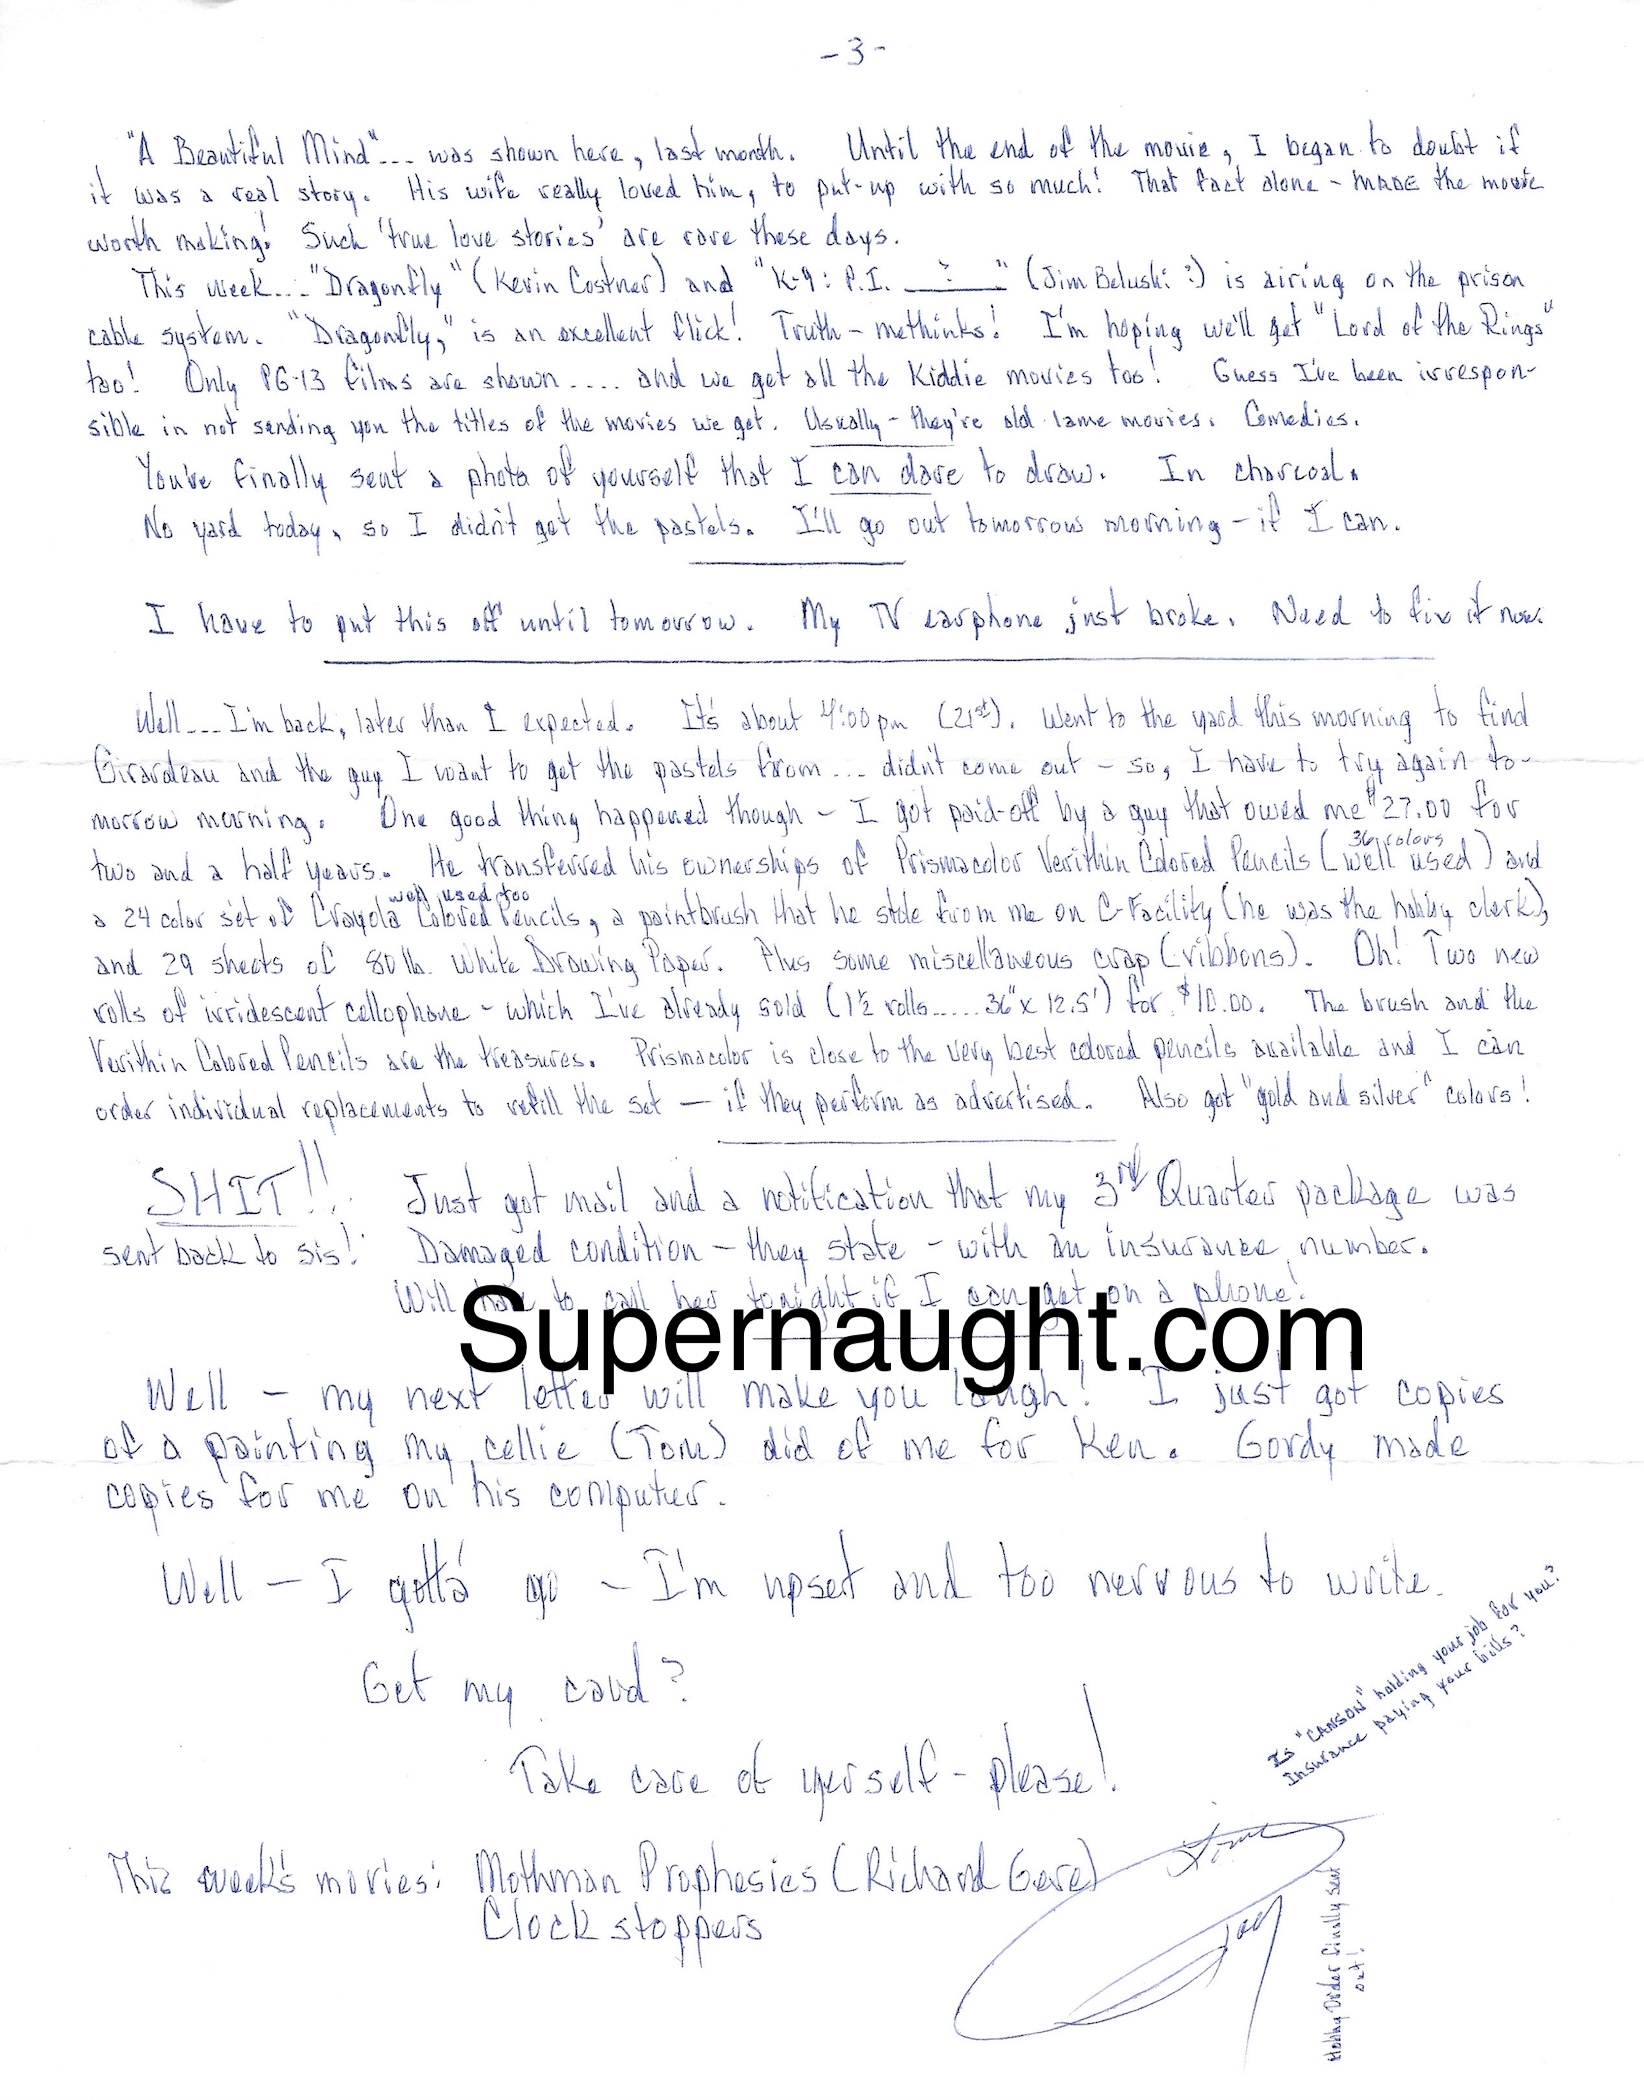 -3-
"A Beautiful Mind"... was shown here, last month. Until the end of the movie, I began to doubt if
it was a real story. His wife really loved him, to put-up with so much! That fact alone - MADE the movie
worth making! Such 'true love stories' are rare these days.
This week... "Dragonfly" (Kevin Costner) and "K-9: P.I. __?__" (Jim Belushi?) is airing on the prison
cable system. "Dragonfly," is an excellent flick! Truth - methinks! I'm hoping we'll get "Lord of the Rings"
too! Only PG-13 films are shown.... and we get all the Kiddie movies too! Guess I've been irrespon-
sible in not sending you the titles of the movies we get. Usually - they're old lame movies. Comedies.
You've finally sent a photo of yourself that I can dare to draw. In charcoal.
No yard today, so I didn't get the pastels. I'll go out tomorrow morning - if I can.
I have to put this off until tomorrow. My TV earphone just broke. Need to fix it now.
Well... I'm back, later than I expected. It's about 4:00 pm (21st). Went to the yard this morning to find
Girardeau and the guy I want to get the pastels from... didn't come out - so, I have to try again to-
morrow morning. One good thing happened though - I got paid-off by a guy that owed me $27.00 for
36 colors
two and a half years. He transferred his ownerships of Prismacolor Verithin Colored Pencils (well used) and
well used too
a 24 color set of Crayola Colored Pencils, a paintbrush that he stole from me on C-Facility (he was the hobby clerk),
and 29 sheets of 80 lb. White Drawing Paper. Plus some miscellaneous crap (ribbons). Oh! Two new
rolls of irridescent cellophane - which I've already sold (1½ rolls..... 36"x 12.5') for $10.00. The brush and the
Verithin Colored Pencils are the treasures. Prismacolor is close to the very best colored pencils available and I can
order individual replacements to refill the set - if they perform as advertised. Also got "gold and silver" colors!
SHIT!! Just got mail and a notification that my 3rd Quarter package was
sent back to sis! Damaged condition - they state - with an insurance number.
Will have to call her tonight if I can get on a phone!
Supernaught.com
Well - my next letter will make you laugh! I just got copies
of a painting my cellie (Tom) did of me for Ken. Gordy made
copies for me on his computer.
Well - I gotta' go - I'm upset and too nervous to write.
Get my card?
Is "CANSON" holding your job for you?
Insurance paying your bills?
Take care of yerself - please!
This week's movies: Mothman Prophesies (Richard Gere)
Clock stoppers
Hobby Order finally sent
out!